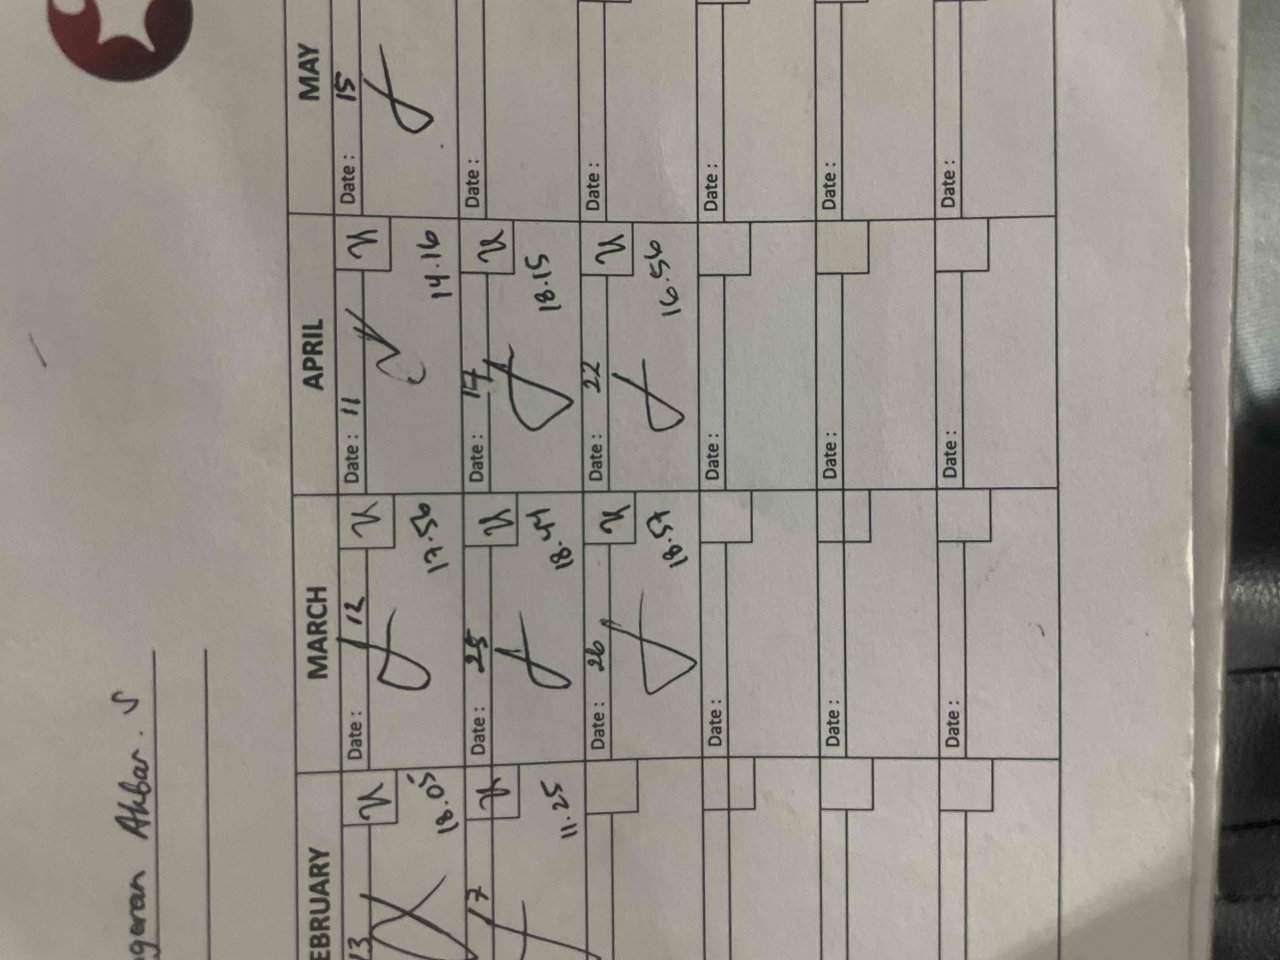 Akbar. S
FEBRUARY MARCH APRIL MAY
13 Date : 12 Date : 11 Date : 15
18.05 17.56 14.16
17 Date : 25 Date : 17 Date :
11.25 18.44 18.15
Date : 26 Date : 22 Date :
18.57 16.56
Date : Date : Date :
Date : Date : Date :
Date : Date : Date :